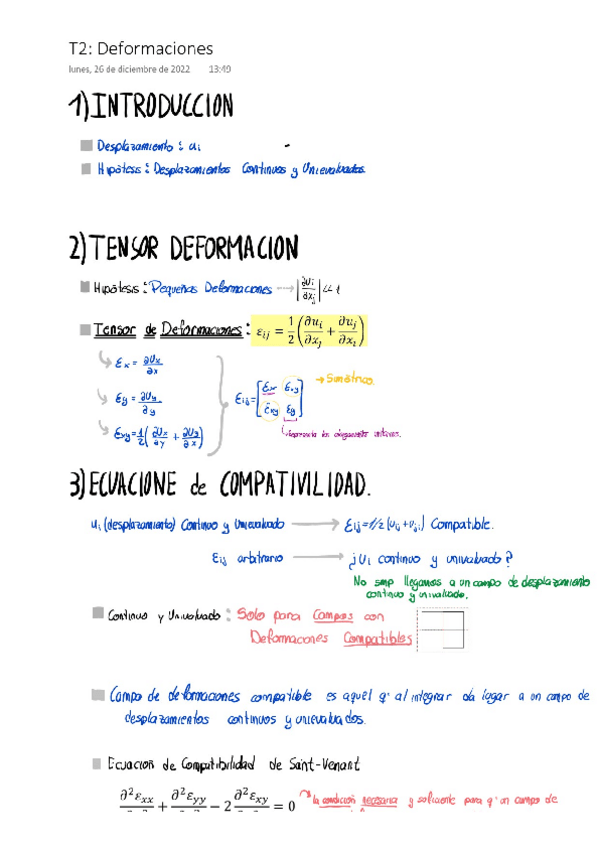 T2: Deformaciones
lunes, 26 de diciembre de 2022 13:49
1) INTRODUCCION
Desplazamiento : ui
Hipótesis : Desplazamientos Continuos y Univaluados
2) TENSOR DEFORMACION
Hipótesis : Pequeñas Deformaciones → |∂Ui/∂xj| << 1
Tensor de Deformaciones : εij = 1/2 (∂ui/∂xj + ∂uj/∂xi)
Ɛx = ∂Ux/∂x
Ɛy = ∂Uy/∂y
Ɛxy = 1/2 (∂Ux/∂y + ∂Uy/∂x)
Ɛij = [Ɛx Ɛxy
Ɛxy Ɛy]
→ Simétrico.
3) ECUACIONE de COMPATIVILIDAD.
ui (desplazamiento) Continuo y Univaluado → Ɛij = 1/2 (ui,j + uj,i) Compatible.
Ɛij arbitrario → ¿Ui continuo y univaluado?
No smp llegamos a un campo de desplazamiento
continuo y univaluado.
Continuo y Univaluado : Solo para Campos con
Deformaciones Compatibles
Campo de deformaciones compatible es aquel q' al integrar da lugar a un campo de
desplazamientos continuos y univaluados.
Ecuación de Compatibilidad de Saint-Venant
∂²εxx + ∂²εyy − 2 ∂²εxy = 0
la condición necesaria y suficiente para q' un campo de